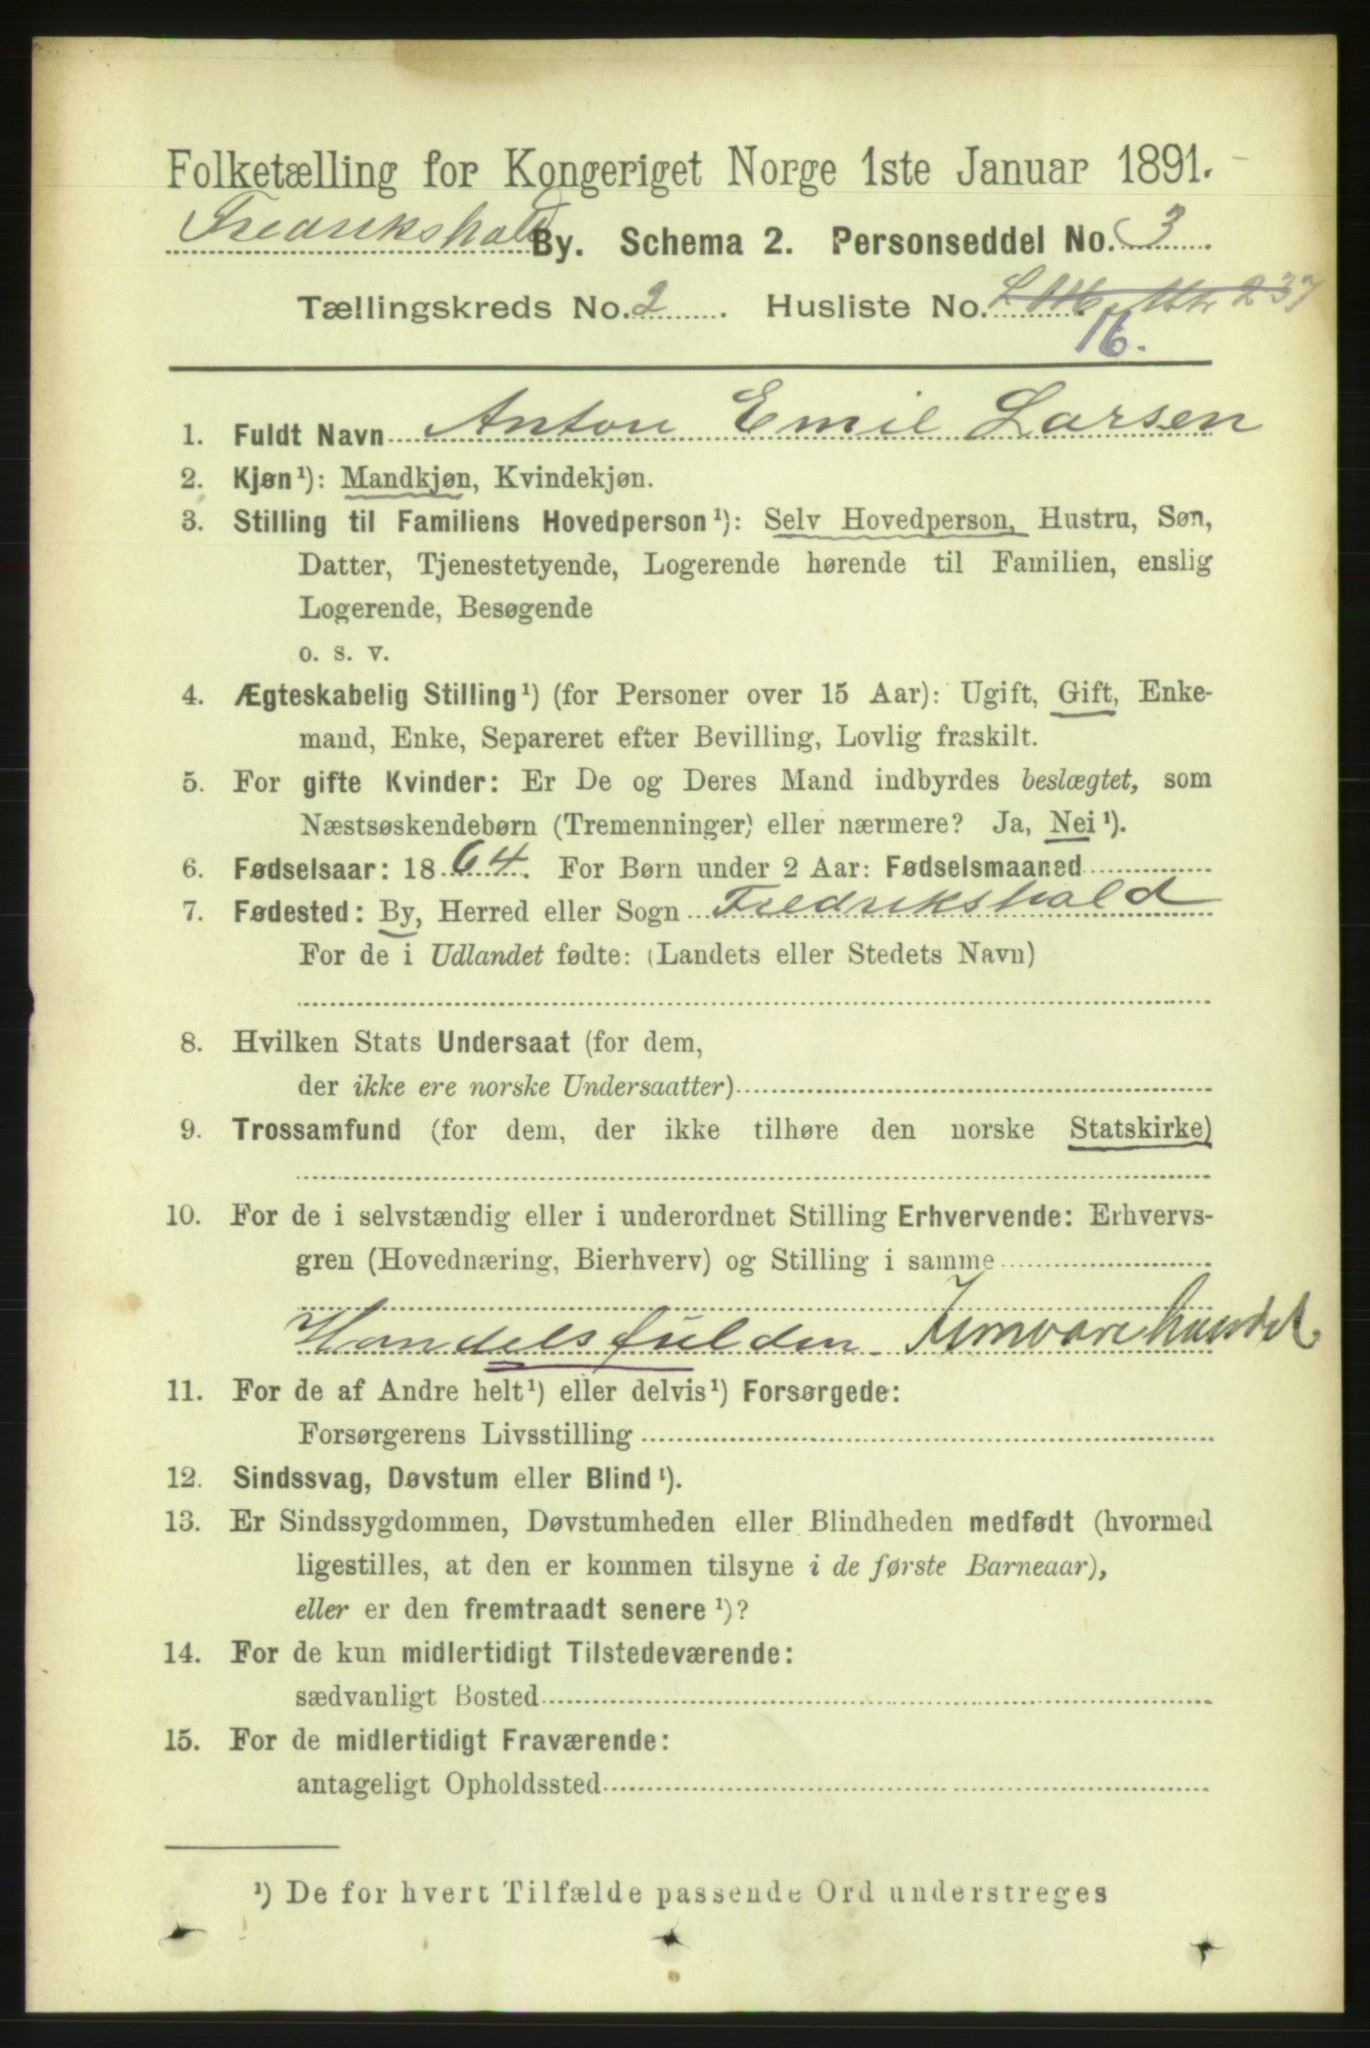 Folketælling for Kongeriget Norge 1ste Januar 1891.
Fredrikshald By. Schema 2. Personseddel No. 3
Tællingskreds No. 2. Husliste No. 237
16.
1. Fuldt Navn Anton Emil Larsen
2. Kjøn¹): Mandkjøn, Kvindekjøn.
3. Stilling til Familiens Hovedperson¹): Selv Hovedperson, Hustru, Søn,
Datter, Tjenestetyende, Logerende hørende til Familien, enslig
Logerende, Besøgende
o. s. v.
4. Ægteskabelig Stilling¹) (for Personer over 15 Aar): Ugift, Gift, Enke-
mand, Enke, Separeret efter Bevilling, Lovlig fraskilt.
5. For gifte Kvinder: Er De og Deres Mand indbyrdes beslægtet, som
Næstsøskendebørn (Tremenninger) eller nærmere? Ja, Nei¹).
6. Fødselsaar: 1864. For Børn under 2 Aar: Fødselsmaaned
7. Fødested: By, Herred eller Sogn Fredrikshald
For de i Udlandet fødte: (Landets eller Stedets Navn)
8. Hvilken Stats Undersaat (for dem,
der ikke ere norske Undersaatter)
9. Trossamfund (for dem, der ikke tilhøre den norske Statskirke)
10. For de i selvstændig eller i underordnet Stilling Erhvervende: Erhvervs-
gren (Hovednæring, Bierhverv) og Stilling i samme
Handelsfuldm. Jernvarehandel
11. For de af Andre helt¹) eller delvis¹) Forsørgede:
Forsørgerens Livsstilling
12. Sindssvag, Døvstum eller Blind¹).
13. Er Sindssygdommen, Døvstumheden eller Blindheden medfødt (hvormed
ligestilles, at den er kommen tilsyne i de første Barneaar),
eller er den fremtraadt senere¹)?
14. For de kun midlertidigt Tilstedeværende:
sædvanligt Bosted
15. For de midlertidigt Fraværende:
antageligt Opholdssted
¹) De for hvert Tilfælde passende Ord understreges